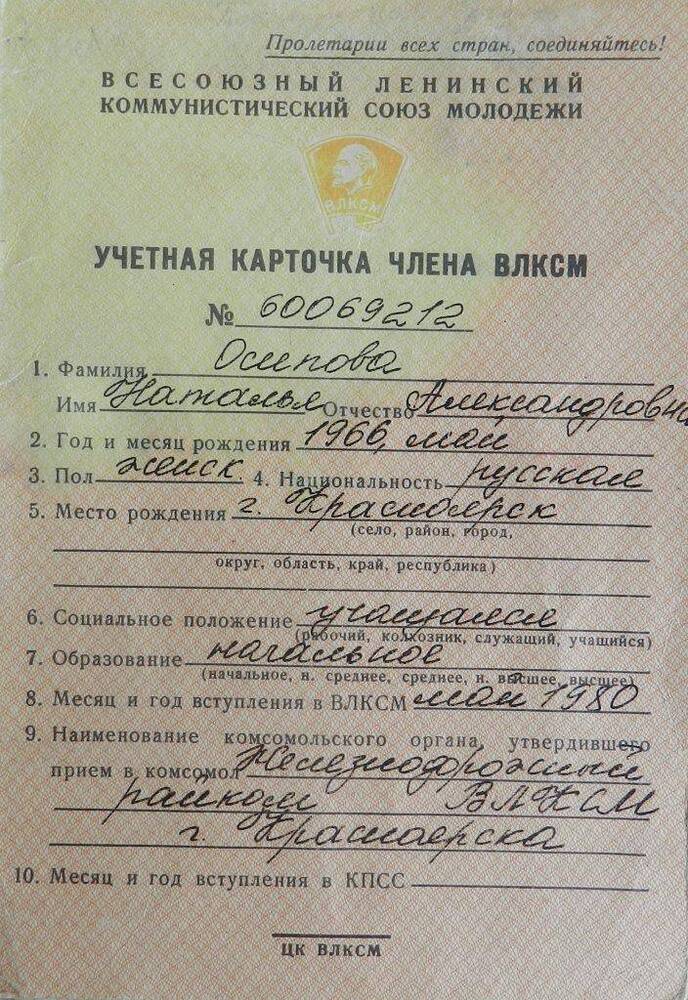 Пролетарии всех стран, соединяйтесь!
ВСЕСОЮЗНЫЙ ЛЕНИНСКИЙ
КОММУНИСТИЧЕСКИЙ СОЮЗ МОЛОДЕЖИ
ВЛКСМ
УЧЕТНАЯ КАРТОЧКА ЧЛЕНА ВЛКСМ
№ 60069212
1. Фамилия Осипова
Имя Наталья Отчество Александровна
2. Год и месяц рождения 1966, май
3. Пол женск. 4. Национальность русская
5. Место рождения г. Красноярск
(село, район, город,
округ, область, край, республика)
6. Социальное положение учащаяся
(рабочий, колхозник, служащий, учащийся)
7. Образование начальное
(начальное, н. среднее, среднее, н. высшее, высшее)
8. Месяц и год вступления в ВЛКСМ май 1980
9. Наименование комсомольского органа, утвердившего
прием в комсомол Железнодорожный
райком ВЛКСМ
г. Красноярска
10. Месяц и год вступления в КПСС
ЦК ВЛКСМ